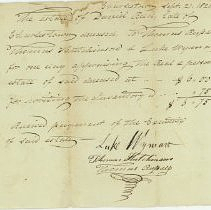 Charlestown Sept. 21. 182
The estate of Daniel
Charlestown deceased, To Thomas Russell
Thomas Hutchinson & Luke Wyman
for one day appraising the Real & personal
estate of said deceased at - $6.00
for writing the inventory - .75
$6.75
Received payment of the
of said estate
Luke Wyman
Thomas Hutchinson
Thomas Russell